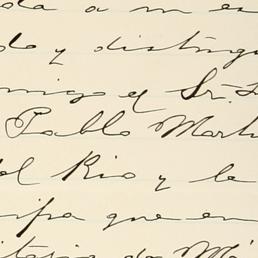 da a m es
do y distingu
migo el Sr.
Pablo Mart
del Rio y le
cipa que en
itario de Mé